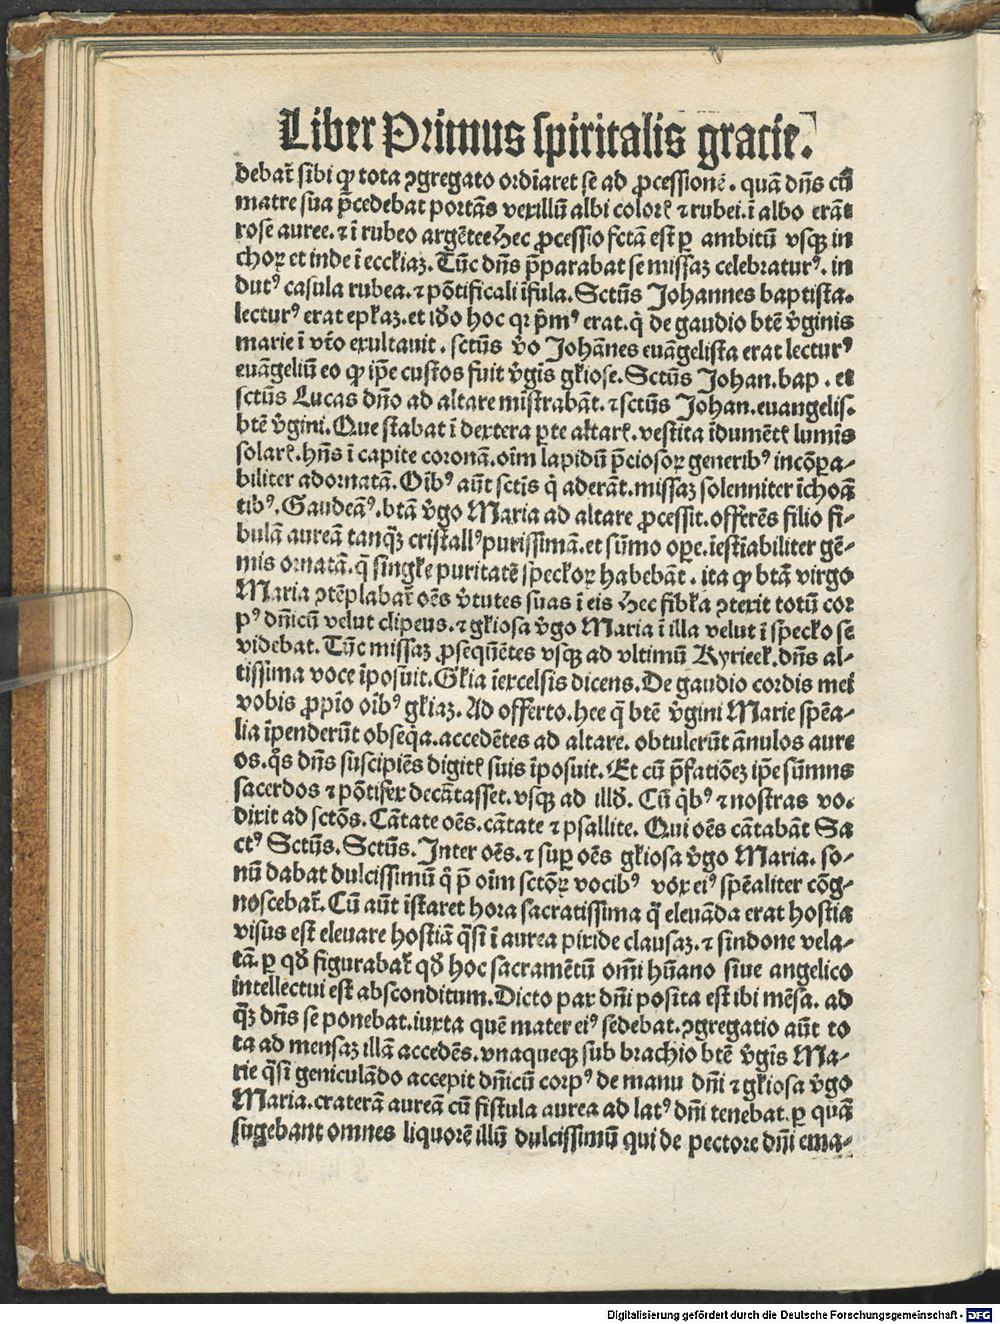 Liber Primus spiritalis gracie.
debat̄ sibi ꝙ tota ↄgregato ordīaret se ad ꝓcessionē. quā dn̄s cū
matre sua p̄cedebat portās vexillū albi colorꝭ ⁊ rubei. ī albo erāt
rose auree. ⁊ ī rubeo argētee Hec ꝓcessio fctā est ꝑ ambitū vsqꝫ in
choꝝ et inde ī ecclīaꝫ. Tūc dn̄s p̄parabat se missaꝫ celebraturꝰ. in
dutꝰ casula rubea. ⁊ pōtificali īfula. Sctūs Johannes baptista.
lecturꝰ erat ep̄laꝫ. et iđo hoc qꝛ p̄mꝰ erat. q̇ de gaudio btē v̄ginis
marie ī vt̄o exultauit. sctūs v̄o Johānes euāgelista erat lecturꝰ
euāgeliū eo ꝙ ip̄e custos fuit v̄gīs gl̄iose. Sctūs Johan. bap. et
sctūs Lucas dn̄o ad altare mīstrabāt. ⁊ sctūs Johan. euangelis.
btē v̄gini. Que stabat ī dextera ꝑte altarꝭ. vestita īdumētꝭ lumīs
solarꝭ. hn̄s ī capite coronā. oīm lapidū p̄ciosoꝝ generibꝰ incōꝑa-
biliter adornatā. Oībꝰ aūt sctīs q̇ aderāt. missaꝫ solenniter īchoā
tibꝰ. Gaudeāꝰ. btā v̄go Maria ad altare ꝓcessit. offerēs filio fi-
bulā aureā tanqꝫ̄ cristallꝰ purissimā. et sūmo oꝑe. īestīabiliter gē-
mis ornatā. q̄ singl̄e puritatē specl̄oꝝ habebāt. ita ꝙ btā virgo
Maria ↄtēplabat̄ oēs v̄tutes suas ī eis Hec fibl̄a ↄtexit totū cor
pꝰ dn̄icū velut clipeus. ⁊ gl̄iosa v̄go Maria ī illa velut ī specl̄o se
videbat. Tūc missaꝫ ꝓseq̄uētes vsqꝫ ad vltimū Kyrieel̄. dn̄s al-
tissima voce īposuit. Gl̄ia īexcelsis dicens. De gaudio cordis mei
vobis ꝓpīo oībꝰ gl̄iaꝫ. Ad offerto. hee q̄ btē v̄gini Marie spēa-
lia īpenderūt obseq̇a. accedētes ad altare. obtulerūt ānulos aure
os. q̊s dn̄s suscipiēs digitꝭ suis īposuit. Et cū p̄fatiōeꝫ ip̄e sūmus
sacerdos ⁊ pōtifex decātasset. vsqꝫ ad illđ. Cū q̇bꝰ ⁊ nostras vo.
dixit ad sctōs. Cātate oēs. cātate ⁊ psallite. Qui oēs cātabāt Sa
ctꝰ Sctūs. Sctūs. Inter oēs. ⁊ suꝑ oēs gl̄iosa v̄go Maria. so-
nū dabat dulcissimū q̇ p̄ oīm sctōꝝ vocibꝰ vox eiꝰ spēaliter cōg-
noscebat̄. Cū aūt īstaret hora sacratissima q̄ eleuāda erat hostia
visus est eleuare hostiā q̄si ī aurea pixide clausaꝫ. ⁊ sindone vela-
tā. ꝑ qđ figurabat̄ qđ hoc sacramētū om̄i hūano siue angelico
intellectui est absconditum. Dicto pax dn̄i posita est ibi mēsa. ad
qꝫ̄ dn̄s se ponebat. iuxta quē mater eiꝰ sedebat. ↄgregatio aūt to
ta ad mensaꝫ illā accedēs. vnaqueqꝫ sub brachio btē v̄gīs Ma-
rie q̄si geniculādo accepit dn̄icū corpꝰ de manu dn̄i ⁊ gl̄iosa v̄go
Maria. craterā aureā cū fistula aurea ad latꝰ dn̄i tenebat. ꝑ quā
sugebant omnes liquorē illū dulcissimū qui de pectore dn̄i ema-
Digitalisierung gefördert durch die Deutsche Forschungsgemeinschaft - DFG